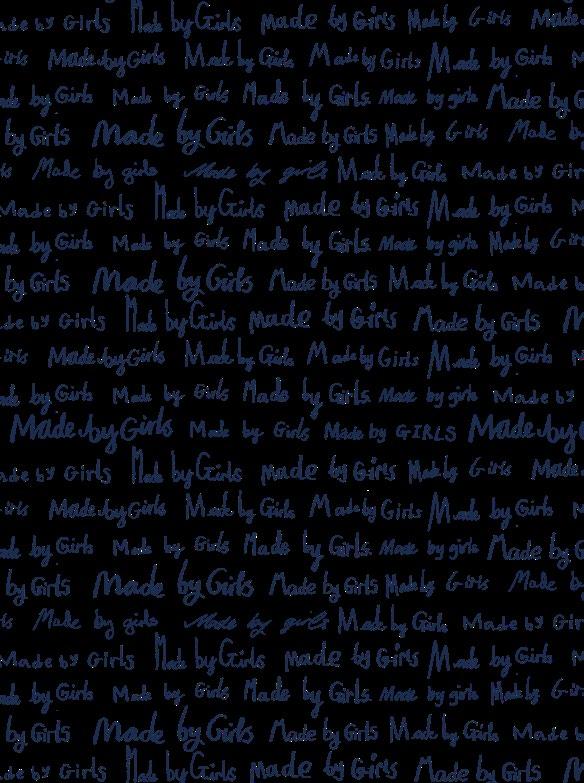 ade by Girls Made by Girls Made by Girls Made by Girls Made
irls Made by Girls Made by Girls Made by Girls Made by Girls M
de by Girls Made by Girls Made by Girls Made by girls Made by G
by Girls Made by Girls Made by Girls Made by Girls Made by
ls Made by girls Made by girls Made by Girls Made by Gir
Made by Girls Made by Girls Made by Girls Made by Girls M
de by Girls Made by Girls Made by Girls Made by girls Made by Gir
by Girls Made by Girls Made by Girls Made by Girls Made b
de by Girls Made by Girls Made by Girls Made by Girls M
irls Made by Girls Made by Girls Made by Girls Made by Girls M
de by Girls Made by Girls Made by Girls Made by girls Made by
Made by Girls Made by Girls Made by GIRLS Made by G
ade by Girls Made by Girls Made by Girls Made by Girls Made
irls Made by Girls Made by Girls Made by Girls Made by Girls M
de by Girls Made by Girls Made by Girls Made by girls Made by G
by Girls Made by Girls Made by Girls Made by Girls Made by
ls Made by girls Made by girls Made by Girls Made by Gir
Made by Girls Made by Girls Made by Girls Made by Girls M
de by Girls Made by Girls Made by Girls Made by girls Made by Gir
by Girls Made by Girls Made by Girls Made by Girls Made b
de by Girls Made by Girls Made by Girls Made by Girls M